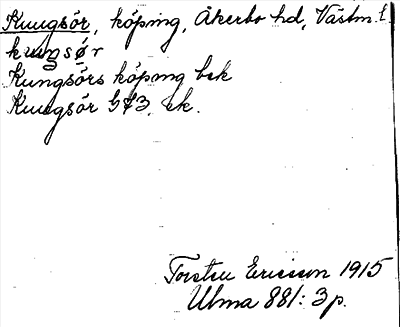 Kungsör, köping, Åkerbo hd, Västm. l.
kuŋsø̜r
Kungsörs köping bek
Kungsör GS3. ek.
Torsten Ericsson 1915
Ulma 881: 3 p.